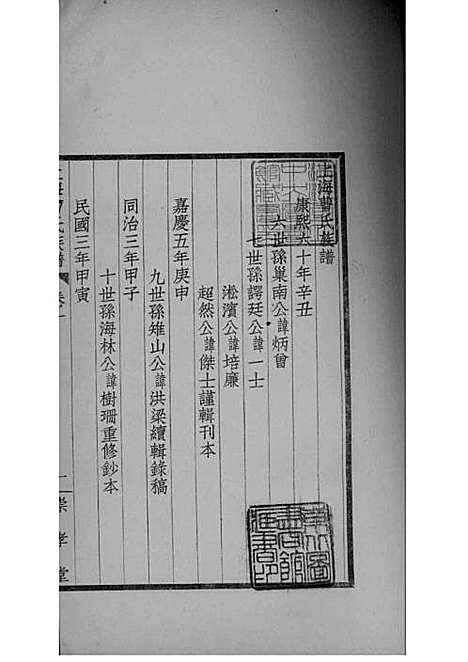 上海曹氏族譜
康熙六十年辛丑
六世孫巢南公諱炳曾
七世孫諤廷公諱一士
淞濱公諱培廉
超然公諱傑士謹輯刊本
嘉慶五年庚申
九世孫雉山公諱洪梁續輯錄稿
同治三年甲子
十世孫海林公諱樹珊重修鈔本
民國三年甲寅
氏族譜
崇孝堂